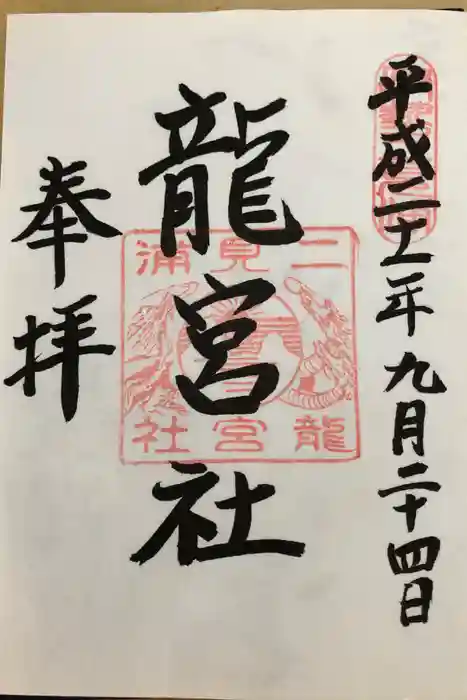 平成二十二年九月二十四日
龍宮社
奉拝
二見浦
龍宮社